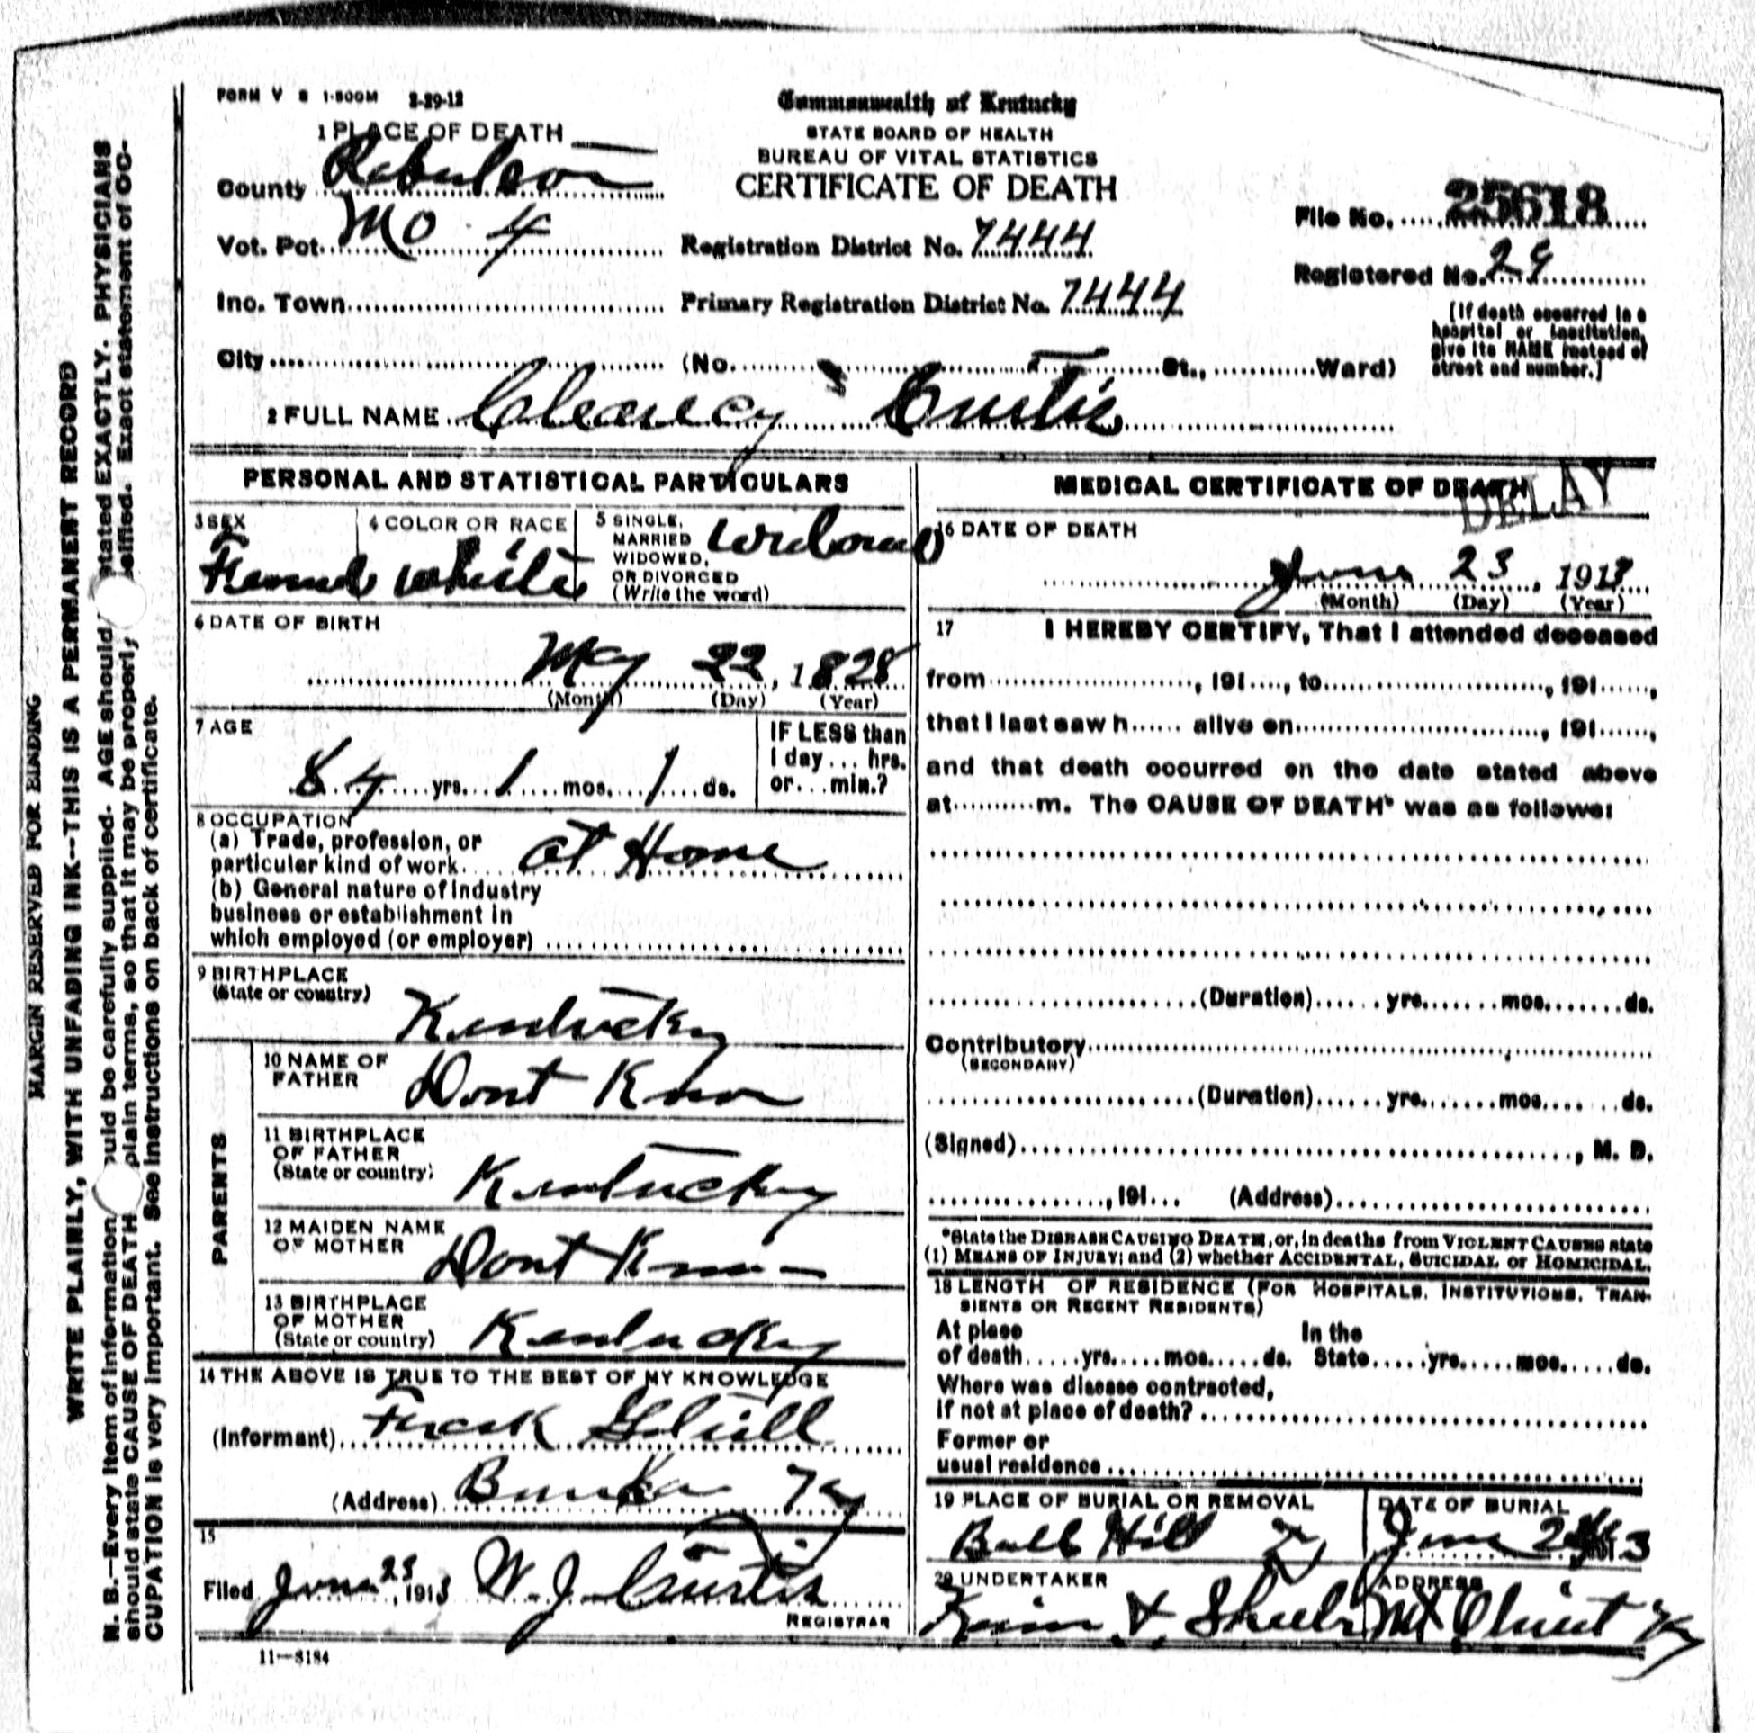 FORM V S 1-500M 2-29-12
Commonwealth of Kentucky
STATE BOARD OF HEALTH
BUREAU OF VITAL STATISTICS
CERTIFICATE OF DEATH
1 PLACE OF DEATH
County
Vot. Pct. No 4
Inc. Town
City (No. St., Ward)
Registration District No. 7444
Primary Registration District No. 7444
File No. 25618
Registered No. 29
[If death occurred in a
hospital or institution,
give its NAME instead of
street and number.]
2 FULL NAME Curtis
PERSONAL AND STATISTICAL PARTICULARS
3 SEX
Female
4 COLOR OR RACE
White
5 SINGLE,
MARRIED
WIDOWED,
OR DIVORCED
(Write the word)
6 DATE OF BIRTH
May 22, 1828
(Month) (Day) (Year)
7 AGE
84 yrs. 1 mos. 1 ds.
IF LESS than
1 day... hrs.
or... min.?
8 OCCUPATION
(a) Trade, profession, or
particular kind of work. At Home
(b) General nature of industry
business or establishment in
which employed (or employer)
9 BIRTHPLACE
(State or country)
Kentucky
PARENTS
10 NAME OF
FATHER
Dont Know
11 BIRTHPLACE
OF FATHER
(State or country)
Kentucky
12 MAIDEN NAME
OF MOTHER
Dont Know
13 BIRTHPLACE
OF MOTHER
(State or country)
Kentucky
14 THE ABOVE IS TRUE TO THE BEST OF MY KNOWLEDGE
(Informant)
(Address) Ky
15
Filed June 23, 1913 W. J. Curtis
REGISTRAR
11-3184
MEDICAL CERTIFICATE OF DEATH
DELAY
16 DATE OF DEATH
June 23, 1913
(Month) (Day) (Year)
17 I HEREBY CERTIFY, That I attended deceased
from , 191 , to , 191 ,
that I last saw h alive on , 191 ,
and that death occurred on the date stated above
at m. The CAUSE OF DEATH* was as follows:
(Duration) yrs. mos. ds.
Contributory
(SECONDARY)
(Duration) yrs. mos. ds.
(Signed) , M. D.
, 191 (Address)
*State the DISEASE CAUSING DEATH, or, in deaths from VIOLENT CAUSES state
(1) MEANS OF INJURY; and (2) whether ACCIDENTAL, SUICIDAL or HOMICIDAL.
18 LENGTH OF RESIDENCE (FOR HOSPITALS, INSTITUTIONS, TRAN-
SIENTS OR RECENT RESIDENTS)
At place
of death yrs. mos. ds.
In the
State yrs. mos. ds.
Where was disease contracted,
if not at place of death?
Former or
usual residence
19 PLACE OF BURIAL OR REMOVAL
Hill
DATE OF BURIAL
June
20 UNDERTAKER
ADDRESS
Mt Olivet Ky
MARGIN RESERVED FOR BINDING
WRITE PLAINLY, WITH UNFADING INK—THIS IS A PERMANENT RECORD
N. B.—Every item of information ould be carefully supplied. AGE should stated EXACTLY. PHYSICIANS
should state CAUSE OF DEATH plain terms, so that it may be properly Exact statement of OC-
CUPATION is very important. See instructions on back of certificate.